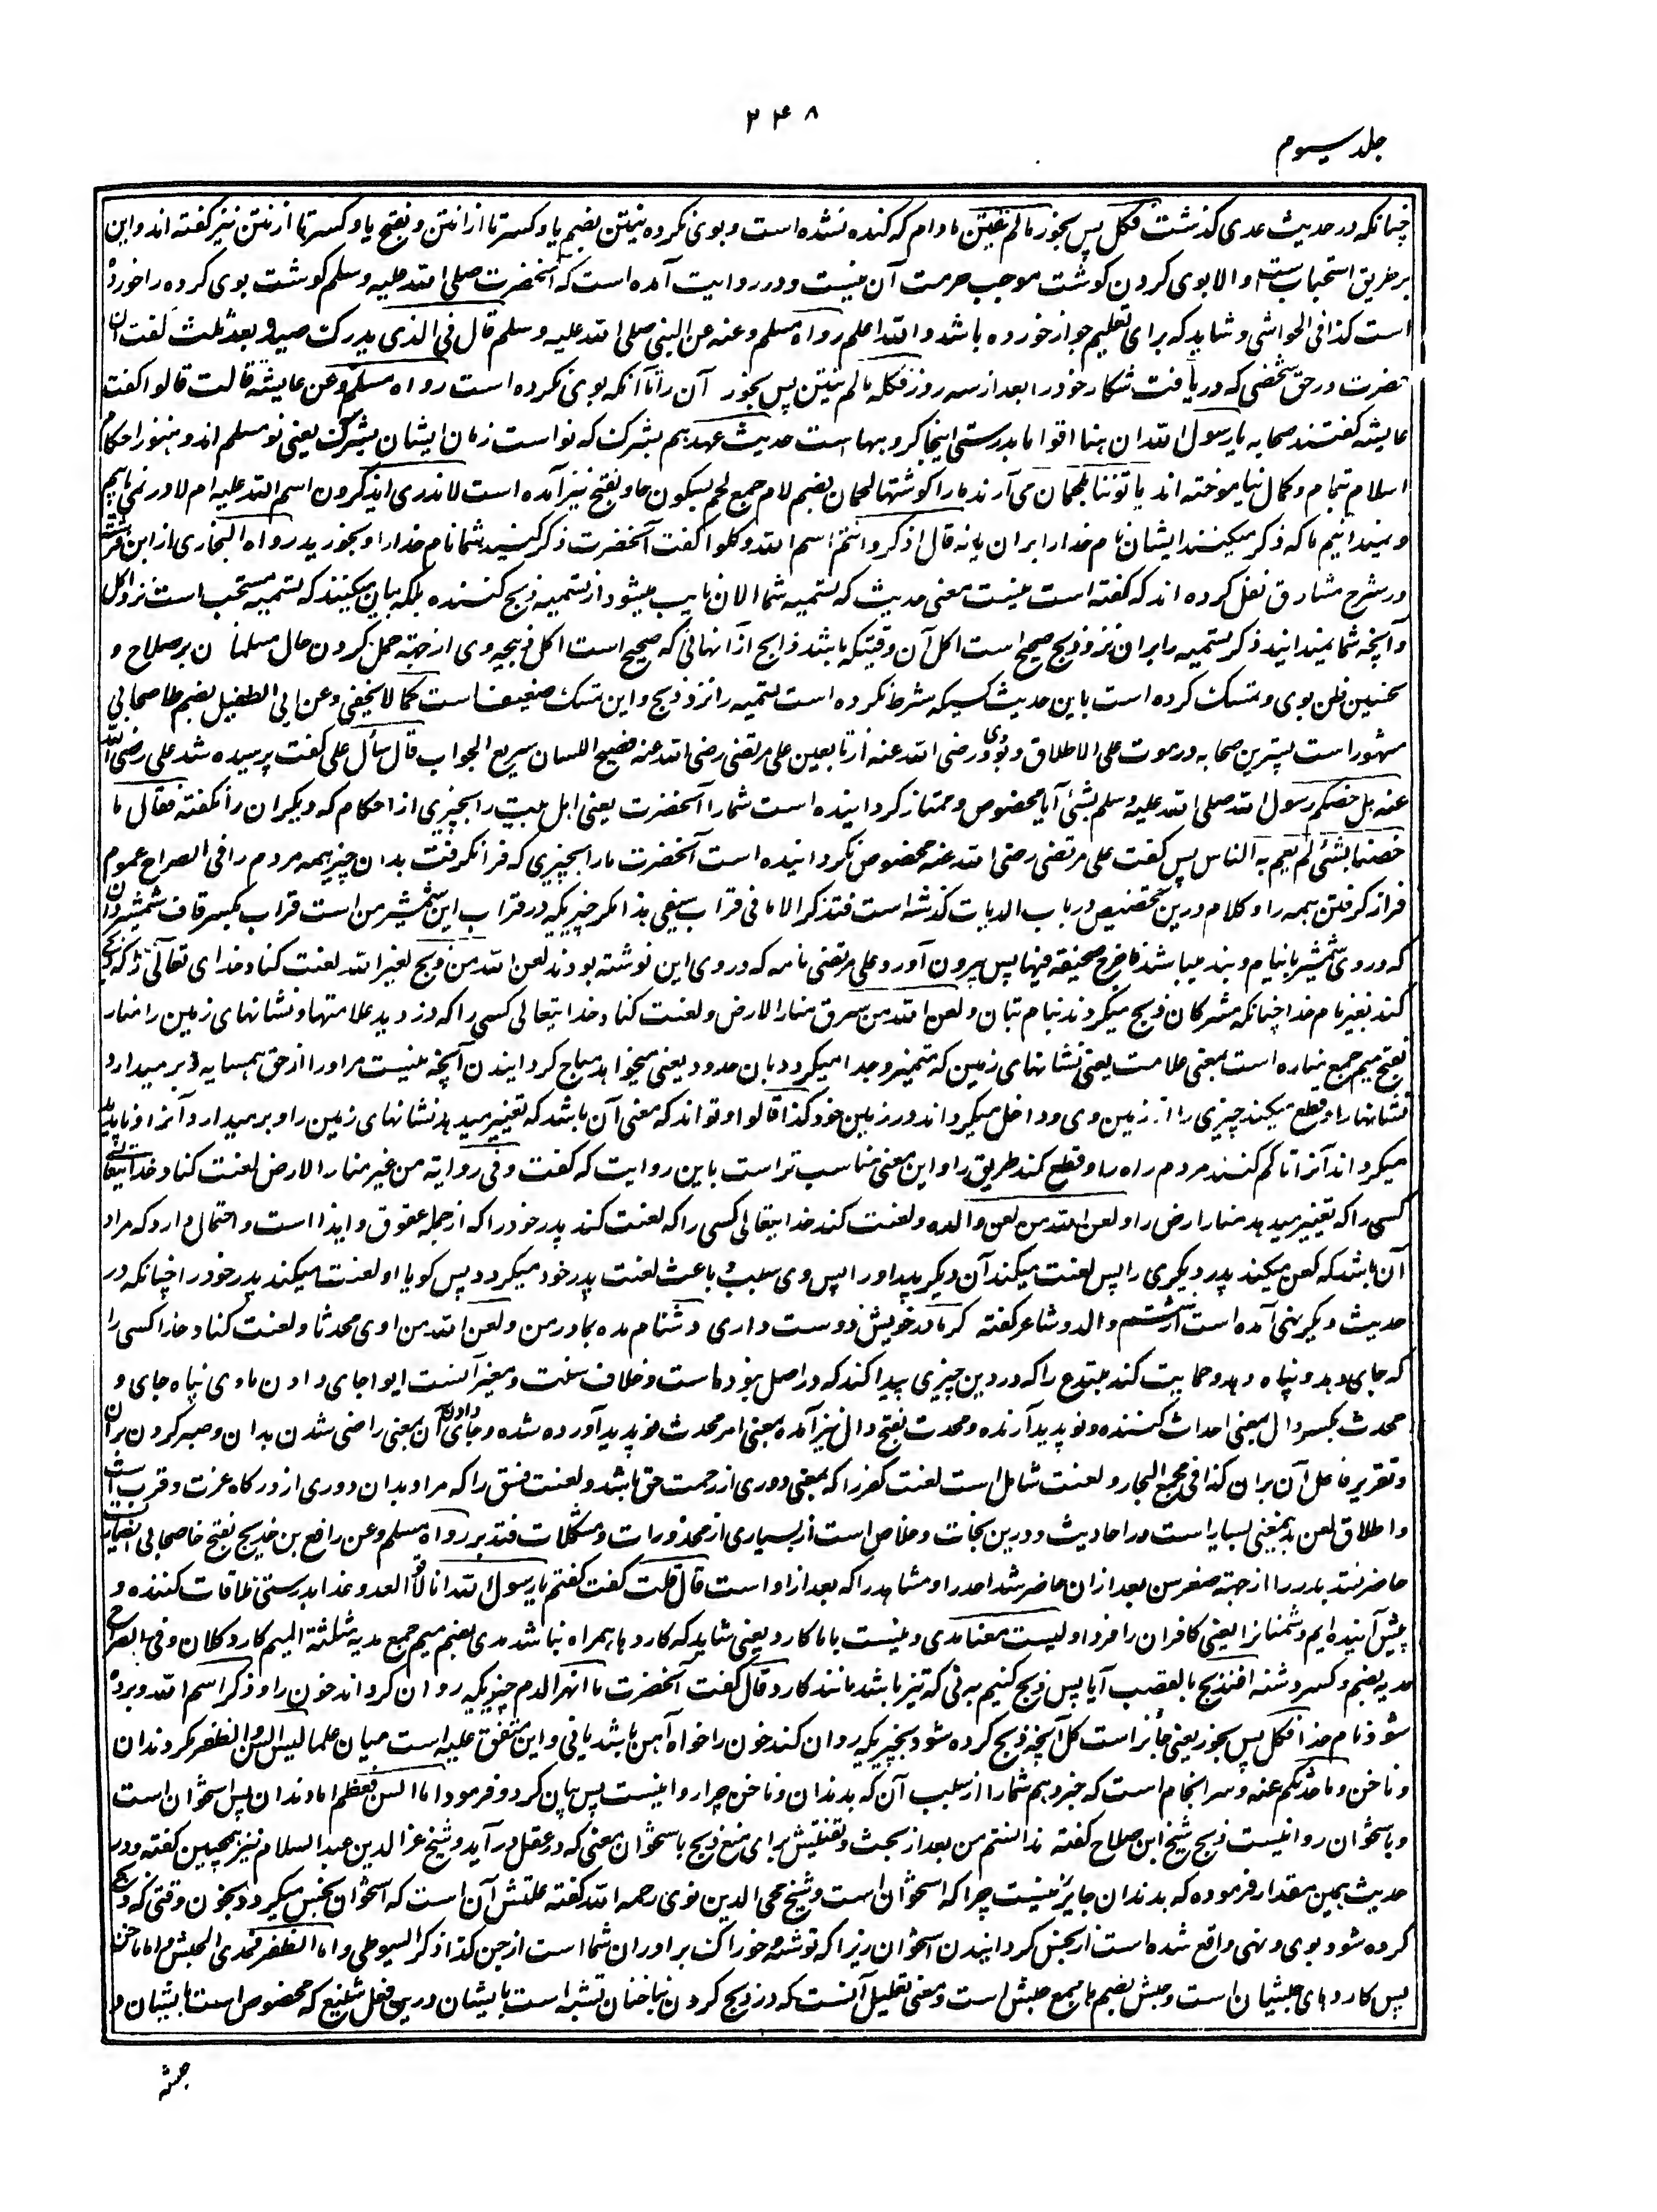 ۲۴۸
جلد سیوم
چنانکه در حدیث عدی کذشت فکل پس بخور ما لم ینتن مادام که کنده نشده است و بوی نکرده ینتن بضم یا و کسر تا از انتن و بفتح یا و کسر تا از نتن نیز کفته اند و این
بر طریق استحباب ست و الا بوی کردن کوشت موجب حرمت آن نیست و در روایت آمده است که آنحضرت صلی الله علیه و سلم کوشت بوی کرده را خورده
است کذا فی الحواشی و شاید که برای تعلیم جواز خورده باشد و الله اعلم رواه مسلم و عنه عن النبی صلی الله علیه و سلم قال فی الذی یدرک صیده بعد ثلث کفت آن
حضرت در حق شخصی که دریافت شکار خود را بعد از سه روز فکله ما لم ینتن پس بخور آن را تا آنکه بوی نکرده است رواه مسلم و عن عایشة قالت قالوا کفت
عایشه کفتند صحابه یا رسول الله ان هنا اقواما بدرستی اینجا کروهها ست حدیث عهدهم بشرک که نو است زمان ایشان بشرک یعنی نو مسلم اند و هنوز احکام
اسلام بتمام و کمال نیاموخته اند یاتوننا بلحمان می آرند ما را کوشتها لحمان بضم لام جمع لحم بسکون حا و بفتح نیز آمده است لا ندری ایذکرون اسم الله علیه ام لا در نمی یابیم
و نمیدانیم ما که ذکر میکنند ایشان نام خدا را بران یا نه قال اذکروا انتم اسم الله و کلوا کفت آنحضرت ذکر کنید شما نام خدا را و بخورید رواه البخاری از ابن
در شرح مشارق نقل کرده اند که کفته است نیست معنی حدیث که تسمیه شما الان نایب میشود از تسمیه ذبح کننده بلکه بیان میکنند که تسمیه مستحب است نزد اکل
و آنچه شما نمیدانید ذکر تسمیه را بران نزد ذبح صحیح است اکل آن وقتیکه باشد ذابح ازآنهائی که صحیح است اکل ذبیحه وی از جهة حمل کردن حال مسلمانان بر صلاح و
تحسین ظن بوی و تمسک کرده است باین حدیث کسیکه شرط نکرده است تسمیه را نزد ذبح و این تمسک ضعیف است کما لا یخفی و عن ابی الطفیل بضم طا صحابی
مشهور است پسترین صحابه در موت علی الاطلاق و بود وی رضی الله عنه از تابعین علی مرتضی رضی الله عنه فصیح اللسان سریع الجواب قال سئل علی کفت پرسیده شد علی رضی الله
عنه هل خصکم رسول الله صلی الله علیه و سلم بشئی آیا مخصوص و ممتاز کردانیده است شما را آنحضرت یعنی اهل بیت را بچیزی از احکام که دیکران را نکفته فقال ما
خصنا بشئی لم یعم به الناس پس کفت علی مرتضی رضی الله عنه مخصوص نکردانیده است آنحضرت ما را بچیزی که فرا نکرفت بدان چیز همه مردم را فی الصراح عموم
فراز کرفتن همه را و کلام درین تخصیص در باب الدیات کذشته است فتذکر الا ما فی قراب سیفی هذا مکر چیزیکه در قراب این شمشیر من است قراب بکسر قاف شمشیردان
که در وی شمشیر با نیام و بند میباشد فاخرج صحیفة فیها پس بیرون آورد علی مرتضی نامه که در وی این نوشته بودند لعن الله من ذبح لغیر الله لعنت کناد خدای تعالی آنرا که ذبح
کند بغیر نام خدا چنانکه مشرکان ذبح میکردند بنام بتان و لعن الله من سرق منار الارض و لعنت کناد خدایتعالی کسی را که دزدید علامتها و نشانهای زمین را منار
بفتح میم جمع مناره است بمعنی علامت یعنی نشانهای زمین که متمیز و جدا میکردد بان حدود یعنی میخواهد مباح کردانیدن آنچه نیست مر او را از حق همسایه و بر میدارد
نشانها را و قطع میکند چیزی را از زمین وی و داخل میکرداند در زمین خود کذا قالوا و تواند که معنی آن باشد که تغییر میدهد نشانهای زمین را و بر میدارد آنرا و ناپدید
میکرداند آنرا تا کم کنند مردم راه را و قطع کند طریق را و این معنی مناسب تر است باین روایت که کفت و فی روایة من غیر منار الارض لعنت کناد خدایتعالی
کسی را که تغییر میدهد منار ارض را و لعن الله من لعن والده و لعنت کند خدایتعالی کسی را که لعنت کند پدر خود را که از جمله عقوق و ایذا است و احتمال دارد که مراد
آن باشد که لعن میکند پدر دیکری را پس لعنت میکند آن دیکر پدر او را پس وی بسبب و باعث لعنت پدر خود میکردد پس کویا او لعنت میکند پدر خود را چنانکه در
حدیث دیکر نهی آمده است از شتم والد و شاعر کفته کر مادر خویش دوست داری دشنام مده بمادر من و لعن الله من اوی محدثا و لعنت کناد خدا کسی را
که جای دهد و پناه دهد و حمایت کند مبتدع را که در دین چیزی پیدا کند که در اصل نبوده است و خلاف سنت و مغیر آنست ایوا جای دادن ماوی پناه جای و
محدث بکسر دال بمعنی احداث کننده و نو پدید آرنده و محدث بفتح دال نیز آمده بمعنی امر محدث نو پدید آورده شده و جای دادن آن بمعنی راضی شدن بدان و صبر کردن بران
و تقریر فاعل آن بران کذا فی مجمع البحار و لعنت شامل است لعنت کفر را که بمعنی دوری از رحمت حق باشد و لعنت فسق را که مراد بدان دوری از درکاه عزت و قرب است
و اطلاق لعن بدیمعنی بسیار است در احادیث و درین نجات و خلاص است از بسیاری از محذورات و مشکلات فتدبر رواه مسلم و عن رافع بن خدیج بفتح خا صحابی انصاری
حاضر نشد بدر را از جهة صغر سن بعد ازان حاضر شد احد را و مشاهد را که بعد از او است قال قلت کفت کفتم یا رسول الله انا لاقوا العدو غدا بدرستی ملاقات کننده و
پیش آینده ایم دشمنانرا یعنی کافران را فردا و لیست معنا مدی و نیست با ما کارد یعنی شاید که کارد با همراه نباشد مدی بضم میم جمع مدیه مثلثة المیم کارد کلان و فی الصراح
مدیه بضم و کسر دشنه افنذبح بالقصب آیا پس ذبح کنیم به نی که تیز باشد مانند کارد قال کفت آنحضرت ما انهر الدم چیزیکه روان کرداند خون را و ذکر اسم الله و برده
شود نام خدا فکل پس بخور یعنی جائز است کل آنچه ذبح کرده شود بچیزیکه روان کند خون را خواه آهن باشد یا نی و این متفق علیه است میان علما لیس السن و الظفر مکر دندان
و ناخن و ساحدثکم عنه و سرانجام است که خبر دهم شما را از سبب آن که بدندان و ناخن چرا روا نیست پس بیان کرد و فرمود اما السن فعظم اما دندان پس استخوان است
و باستخوان روا نیست ذبح شیخ ابن صلاح کفته ندانستم من بعد از بحث و تفتیش برای منع ذبح باستخوان معنی که در عقل در آید و شیخ عز الدین عبد السلام نیز همچنین کفته و در
حدیث بهمین مقدار فرموده که بدندان جایز نیست چرا که استخوان است و شیخ محی الدین نووی رحمه الله کفته علتش آن است که استخوان نجس میکردد بخون وقتی که ذبح
کرده شود بوی و نهی واقع شده است از نجس کردانیدن استخوان زیرا که توشه و خوراک برادران شما است از جن کذا ذکر السیوطی و اما الظفر فمدی الحبش و اما ناخن
پس کاردهای حبشیان است و حبش بضم حا جمع حبش است و معنی تعلیل آنست که در ذبح کردن بناخنان تشبه است بایشان درین فعل شنیع که مخصوص است بایشان و
حبشه